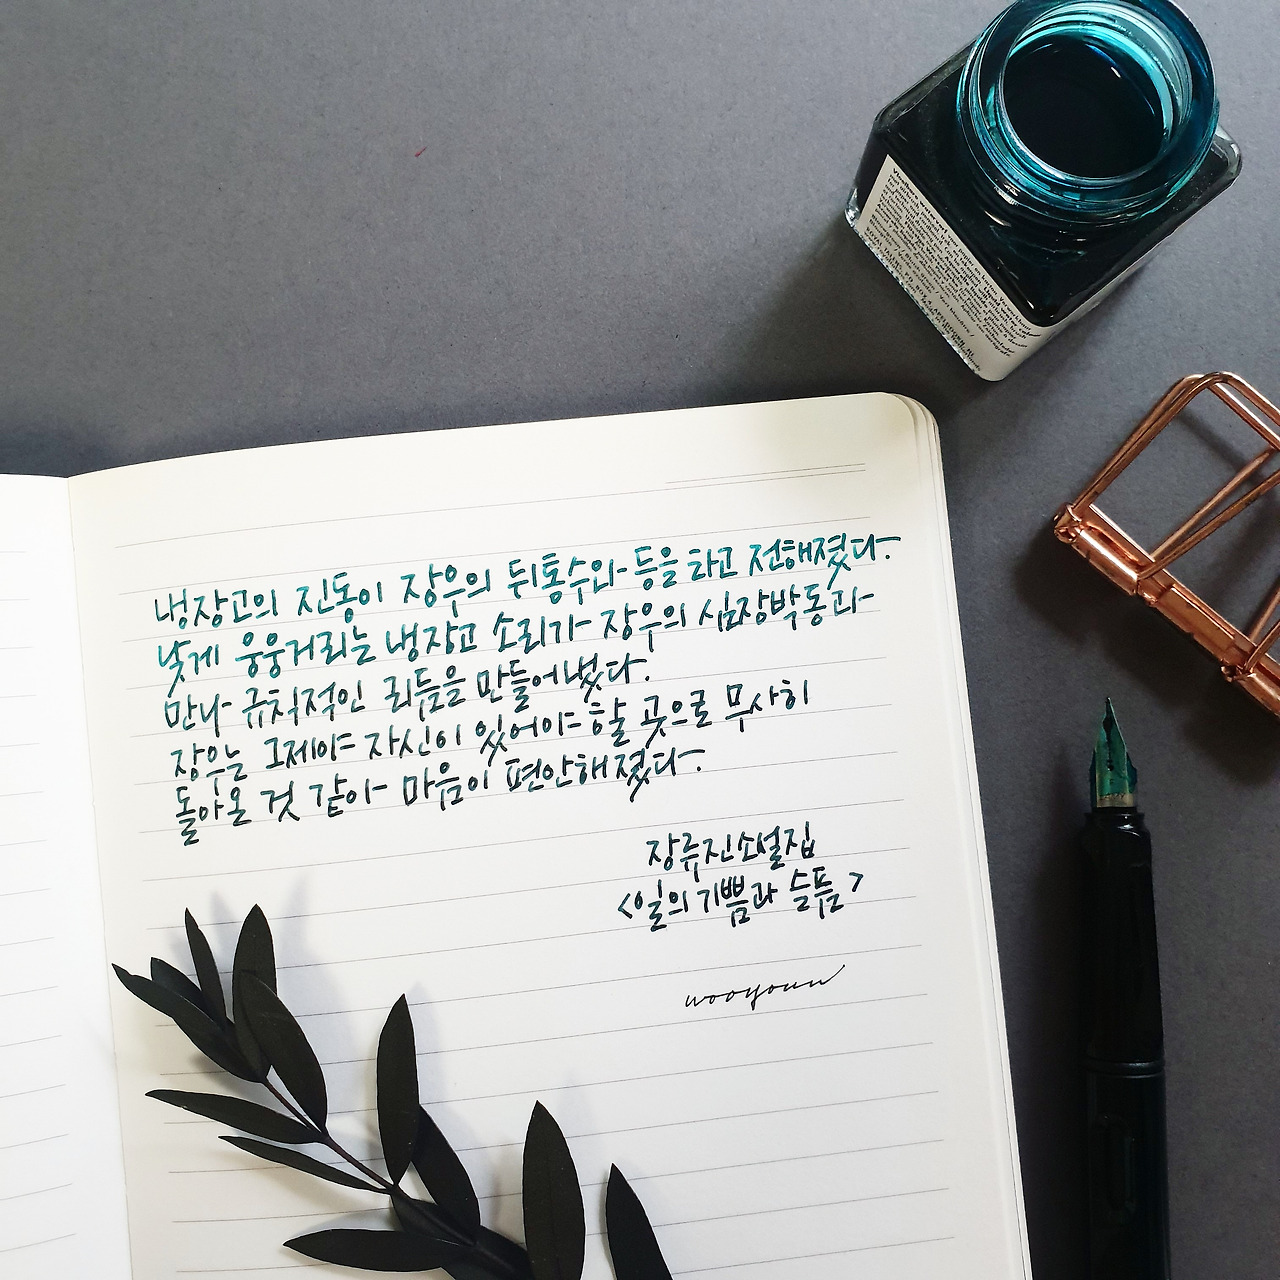 냉장고의 진동이 장우의 뒤통수와 등을 타고 전해졌다.
낮게 웅웅거리는 냉장고 소리가 장우의 심장박동과
만나 규칙적인 리듬을 만들어냈다.
장우는 그제야 자신이 있어야 할 곳으로 무사히
돌아온 것 같아 마음이 편안해졌다.
장류진소설집
<일의 기쁨과 슬픔>
wooyoun